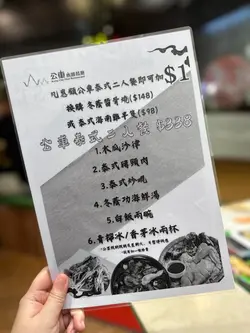 公車
凡惠顧公車泰式二人餐即可加$1
換購 冬蔭醬骨煲($148)
或 泰式海南雞半隻($98)
公車泰式二人餐 $338
1.木瓜沙律
2.泰式豬頸肉
3.泰式炒蜆
4.冬蔭功海鮮湯
5.白飯兩碗
6.青檸冰/香茅冰兩杯